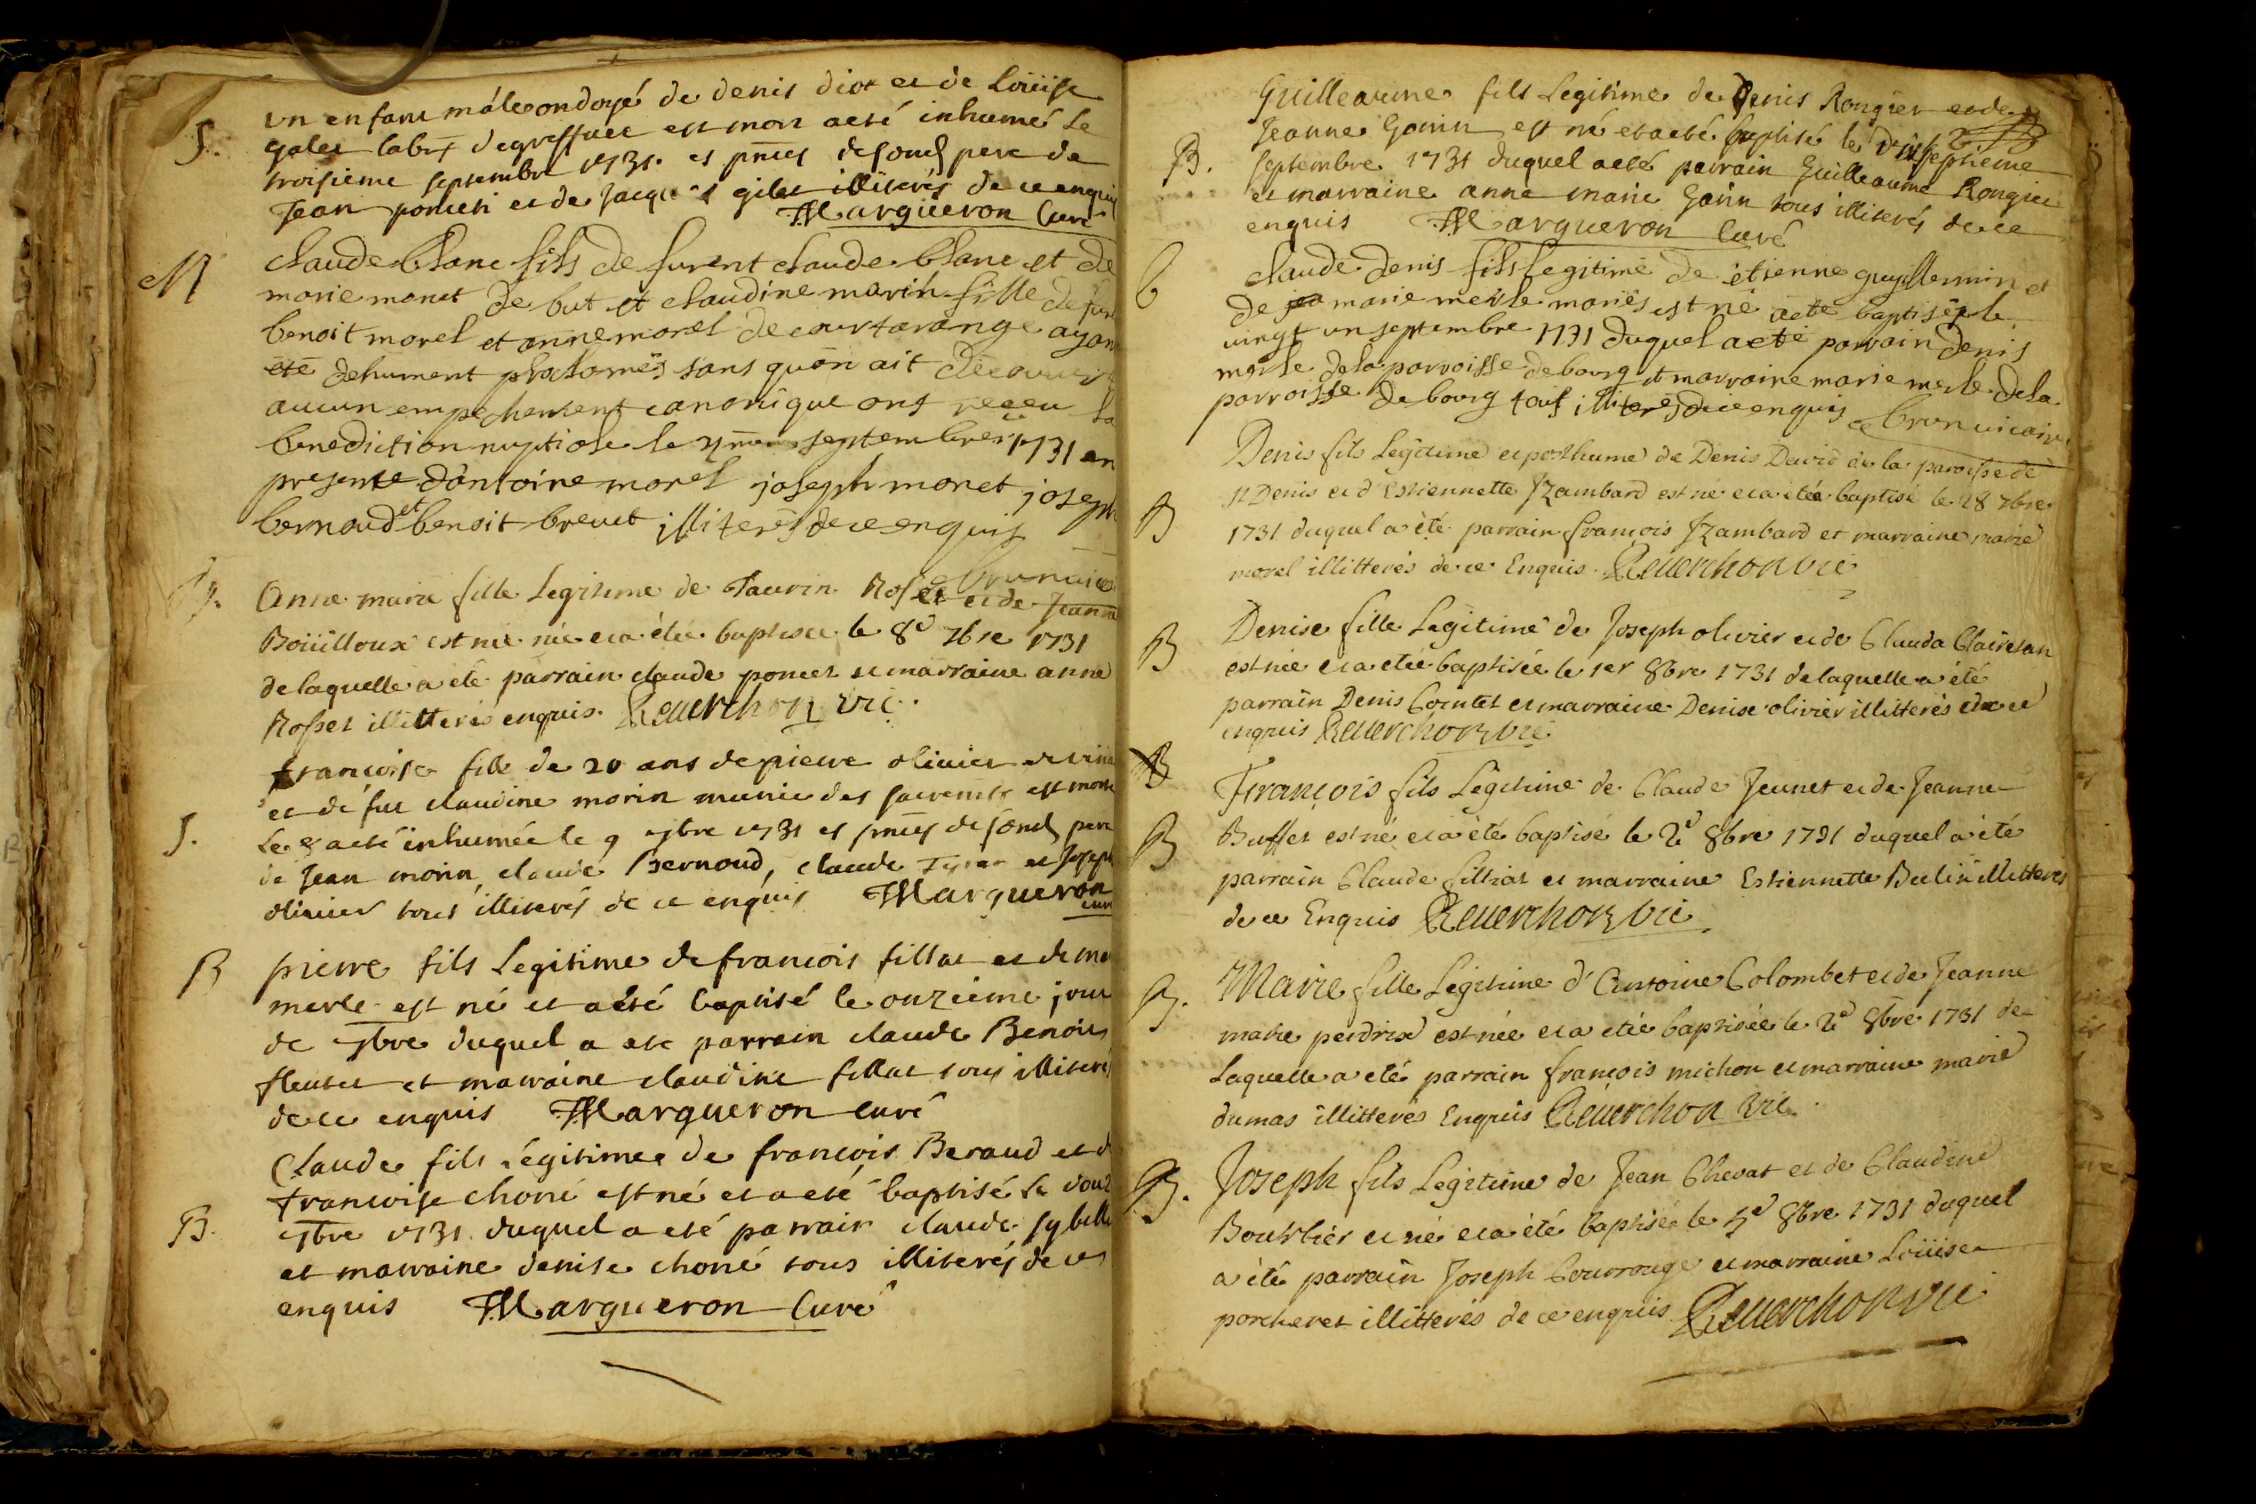 S.
un enfant mâle ondoyé de denis diot et de Loüise
galet est mort a eté inhumé le
troisieme septembre 1731. et pnces de sond pere de
Jean poncet et de Jacques gilet illiterés de ce enquis
Margueron Curé
M
claude blanc fils de furent claude blanc et de
marie monet de but et claudine morin fille de
benoit morel et anne morel de courtarange ayant
été dehument proclamés sans qu'on ait decouvert
aucun empechement canonique ont reçeu la
benediction nuptiale le septembre 1731 en
presente d'antoine morel joseph monet joseph
bernoud et benoit brevet illiterés de ce enquis
brun vicaire
B.
Anne marie fille Legitime de Taurin Rosset et de Jeanne
Boüilloux est née née et a étée baptisée le 8e 7bre 1731
de laquelle a été parrain claude poncet et marraine anne
Rosset illitterés enquis. Reverchon vic.
S.
francoise fille de 20 ans de pierre olivier
et de fue claudine morin munie des sacremts est morte
Le 8 a eté inhumée le 9 7bre 1731 et pnces de sond pere
de Jean morin, claude Bernoud, claude et Joseph
olivier tous illiterés de ce enquis Margueron
curé
B
pierre fils Legitime de francois fillat et de
merle est né et a eté baptisé le onzieme jour
de 7bre duquel a ete parrain claude Benoit
fleutet et marraine claudine fillat tous illiterés
de ce enquis Margueron curé
B.
Claude fils légitime de francois Beraud et de
francoise choné est né et a eté baptisé le douze
7bre 1731. duquel a eté parrain claude sybelle
et marraine denise choné tous illiterés de ce
enquis Margueron Curé
B.
Guilleaume fils Legitime de Denis Rongier et de
Jeanne Gonin est né et a eté baptisé le dixseptieme
septembre 1731 duquel a eté parrain Guilleaume Rongier
et marraine anne marie Gonin tous illiterés de ce
enquis Margueron Curé
b
claude denis fils legitime de étienne guyllermin et
de marie merle mariés est né a eté baptisé le
vingt un septembre 1731 duquel a eté parrain denis
merle de la parroisse de bourg et marraine marie merle de la
parroisse de bourg tous illiterés de ce enquis brun vicaire
B
Denis fils Legitime et posthume de Denis David de la paroisse de
St Denis et d'Estiennette Jzambard est né et a étée baptisé le 28 7bre
1731 duquel a été parrain françois Jzambard et marraine marie
morel illitterés de ce Enquis. Reverchon vic
B
Denise fille Legitime de Joseph olivier et de Clauda Clairetan
est née et a étée baptisée le 1er 8bre 1731 de laquelle a été
parrain Denis Cointet et marraine Denise olivier illitterés de ce
enquis Reverchon vic
B
François fils Legitime de Claude Jeunet et de Jeanne
B
Buffet est né et a été baptisé le 2d 8bre 1731 duquel a été
parrain Claude filliat et marraine Estiennette Belin illitterés
de ce Enquis Reverchon vic
B.
Marie fille Legitime d'Antoine Colombet et de Jeanne
marie perdrix est née et a étée baptisée le 2d 8bre 1731 de
Laquelle a eté parrain françois michon et marraine marie
dumas illitterés Enquis Reverchon vic.
B.
Joseph fils Legitime de Jean Chevat et de Claudine
Bourbier et né et a été baptisée le 5e 8bre 1731 duquel
a été parrain Joseph Convrouge et marraine Loüise
porcheret illitterés de ce enquis Reverchon vic